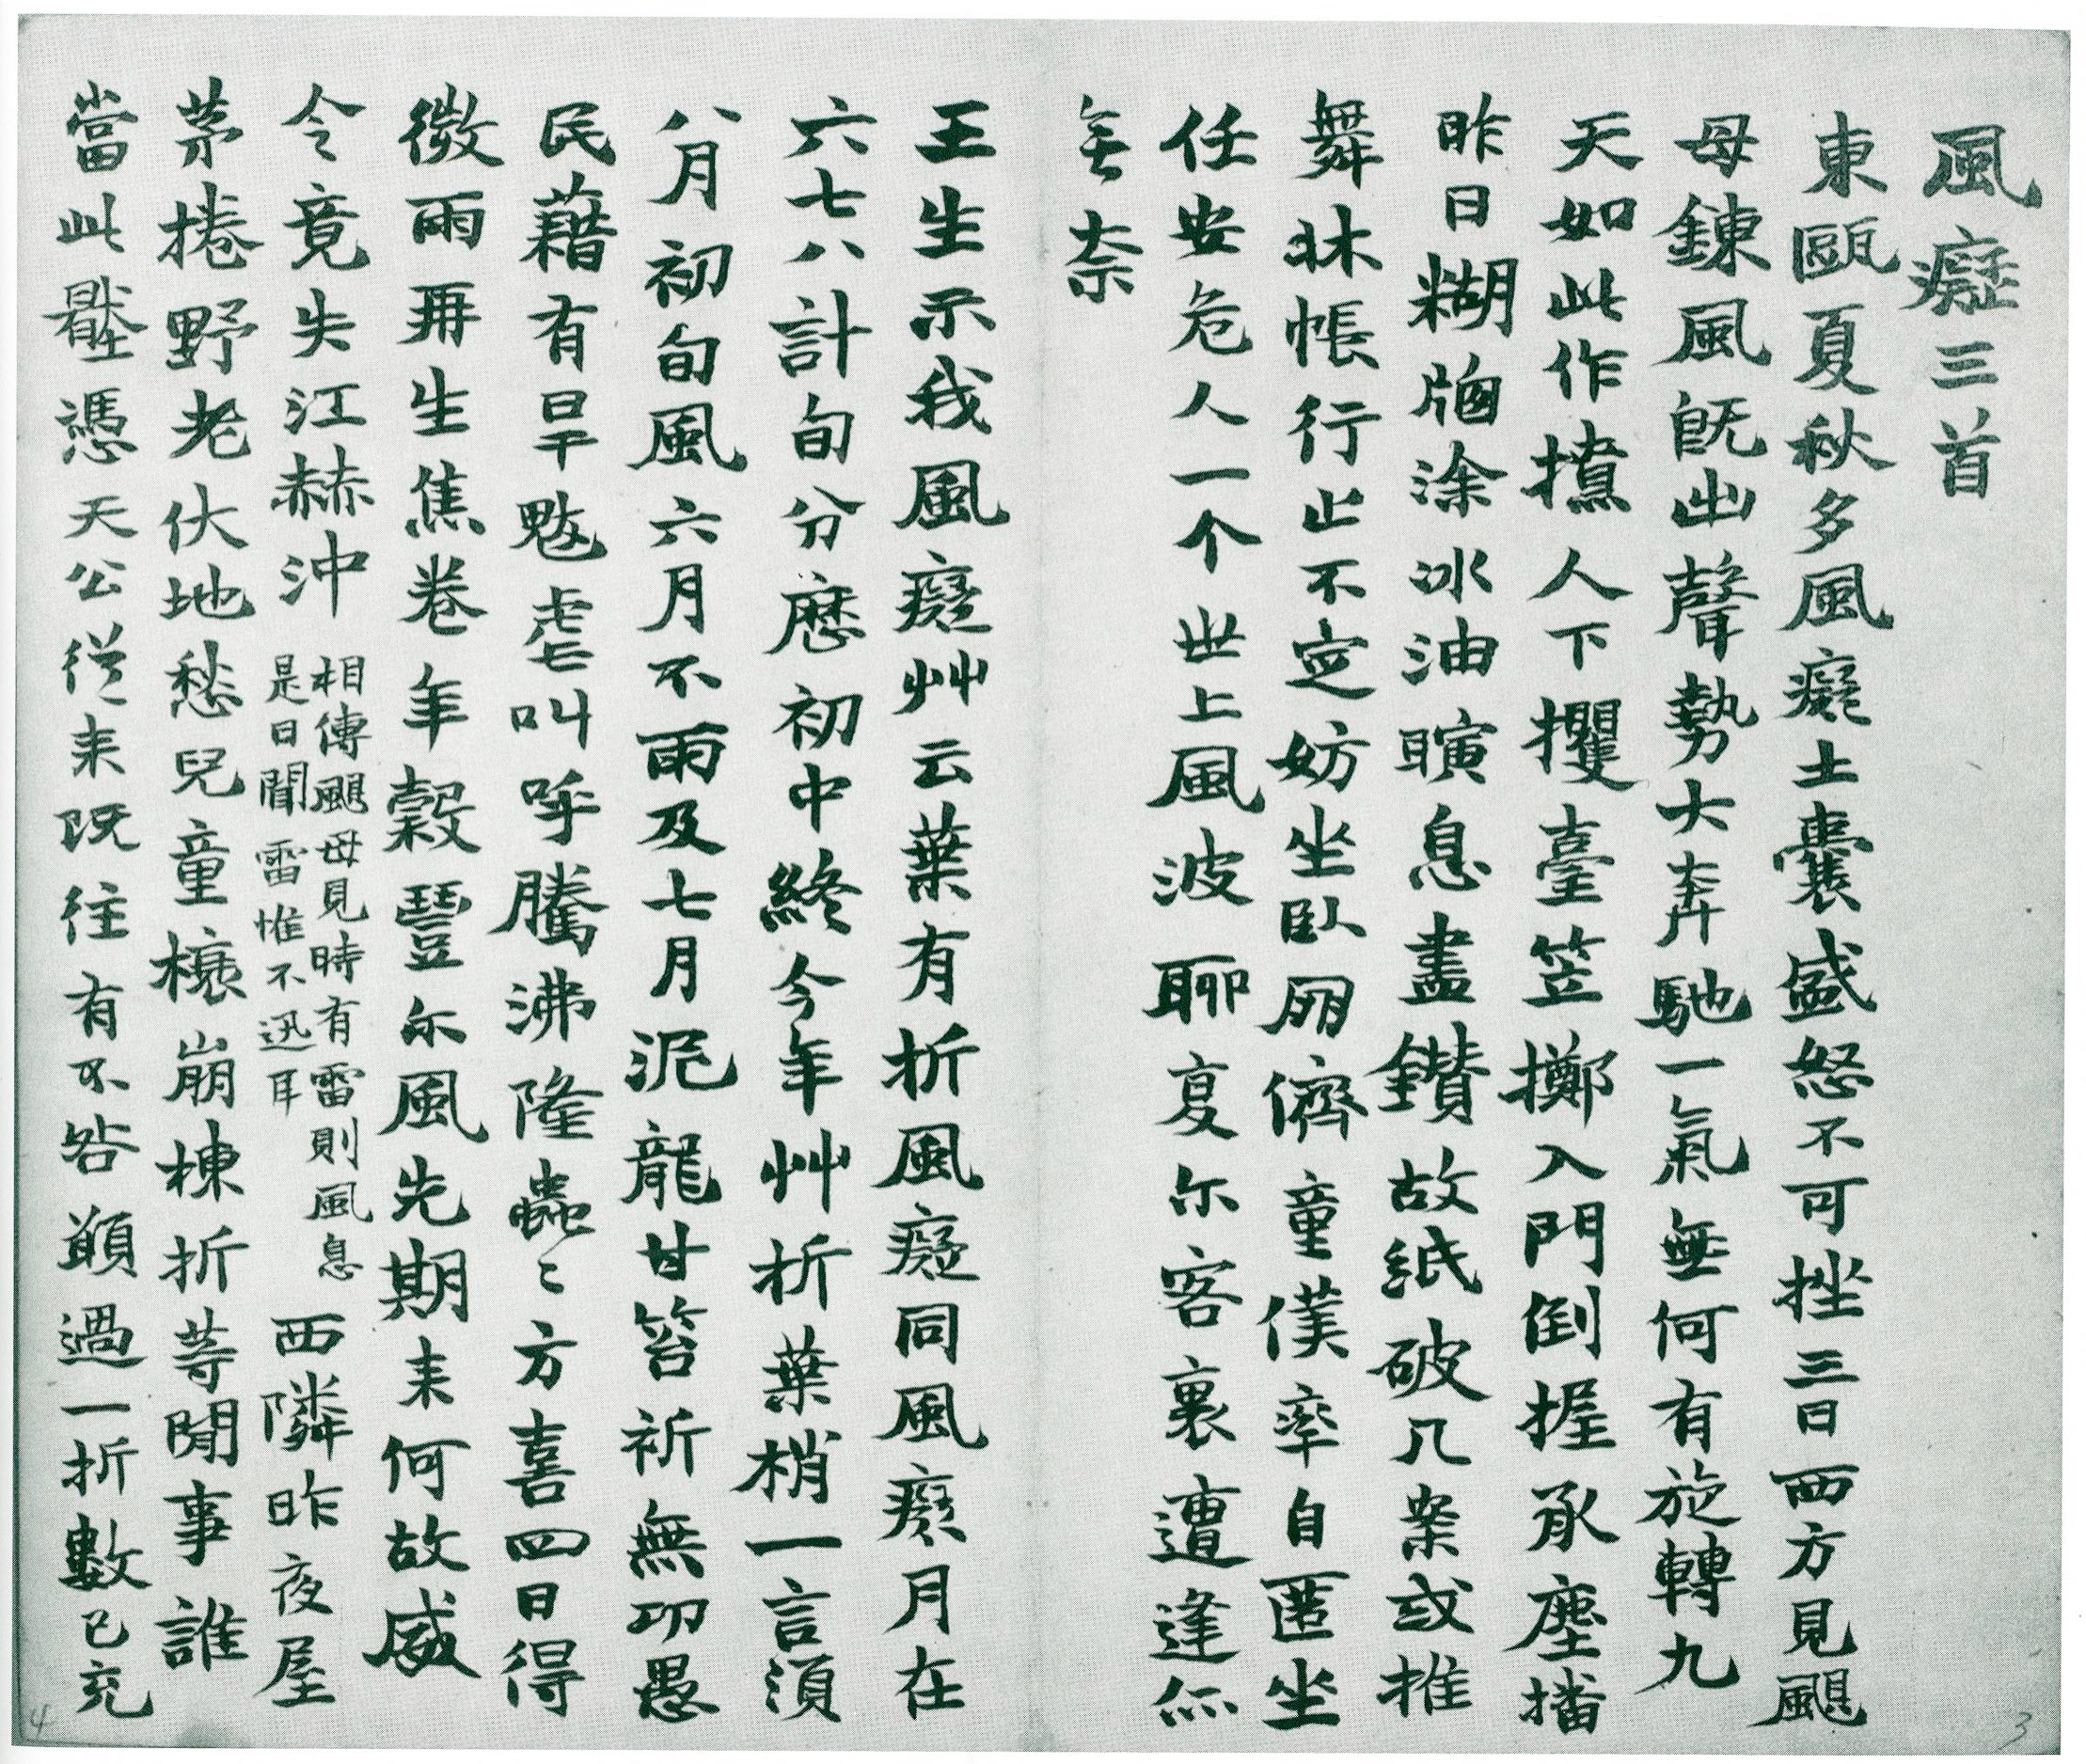 風癡三首
東甌夏秋多風癡土囊盛怒不可挫三日西方見颶
母鍊風旣出聲勢大奔馳一氣無何有旋轉九
天如此作㩆人下攫臺笠擲入門倒握承塵播
昨日糊牕涂冰油暝息盡鑽故紙破几案或推
舞牀帳行止不定妨坐臥朋儕童僕率自匿坐
任安危人一个世上風波聊复尔客裏遭逢
無奈
王生示我風癡艸云葉有折風癡同風癡月在
六七八計旬分歷初中終今年艸折葉梢一言須
八月初旬風六月不雨及七月泥龍甘笤祈無功愚
民藉有旱魃虐叫呼騰沸隆蟲〻方喜四日得
微雨再生焦卷年穀豐尔風先期来何故威
令竟失江赫沖
相傳颶母見時有雷則風息
是日聞雷惟不迅耳
西隣昨夜屋
茅捲野老伏地愁兒童榱崩棟折等閒事誰
當此憑天公從来既往有不咎顚過一折數已充
4
3